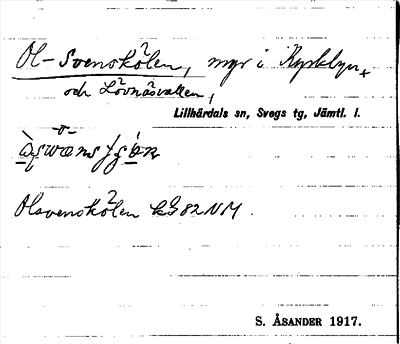 Ol-Svenskölen, myr i Kyrkbyn
och Lövnäsvallen,
Lillhärdals sn, Svegs tg, Jämtl. l.
Olsvenskölen kg 82 NM.
S. ÅSANDER 1917.